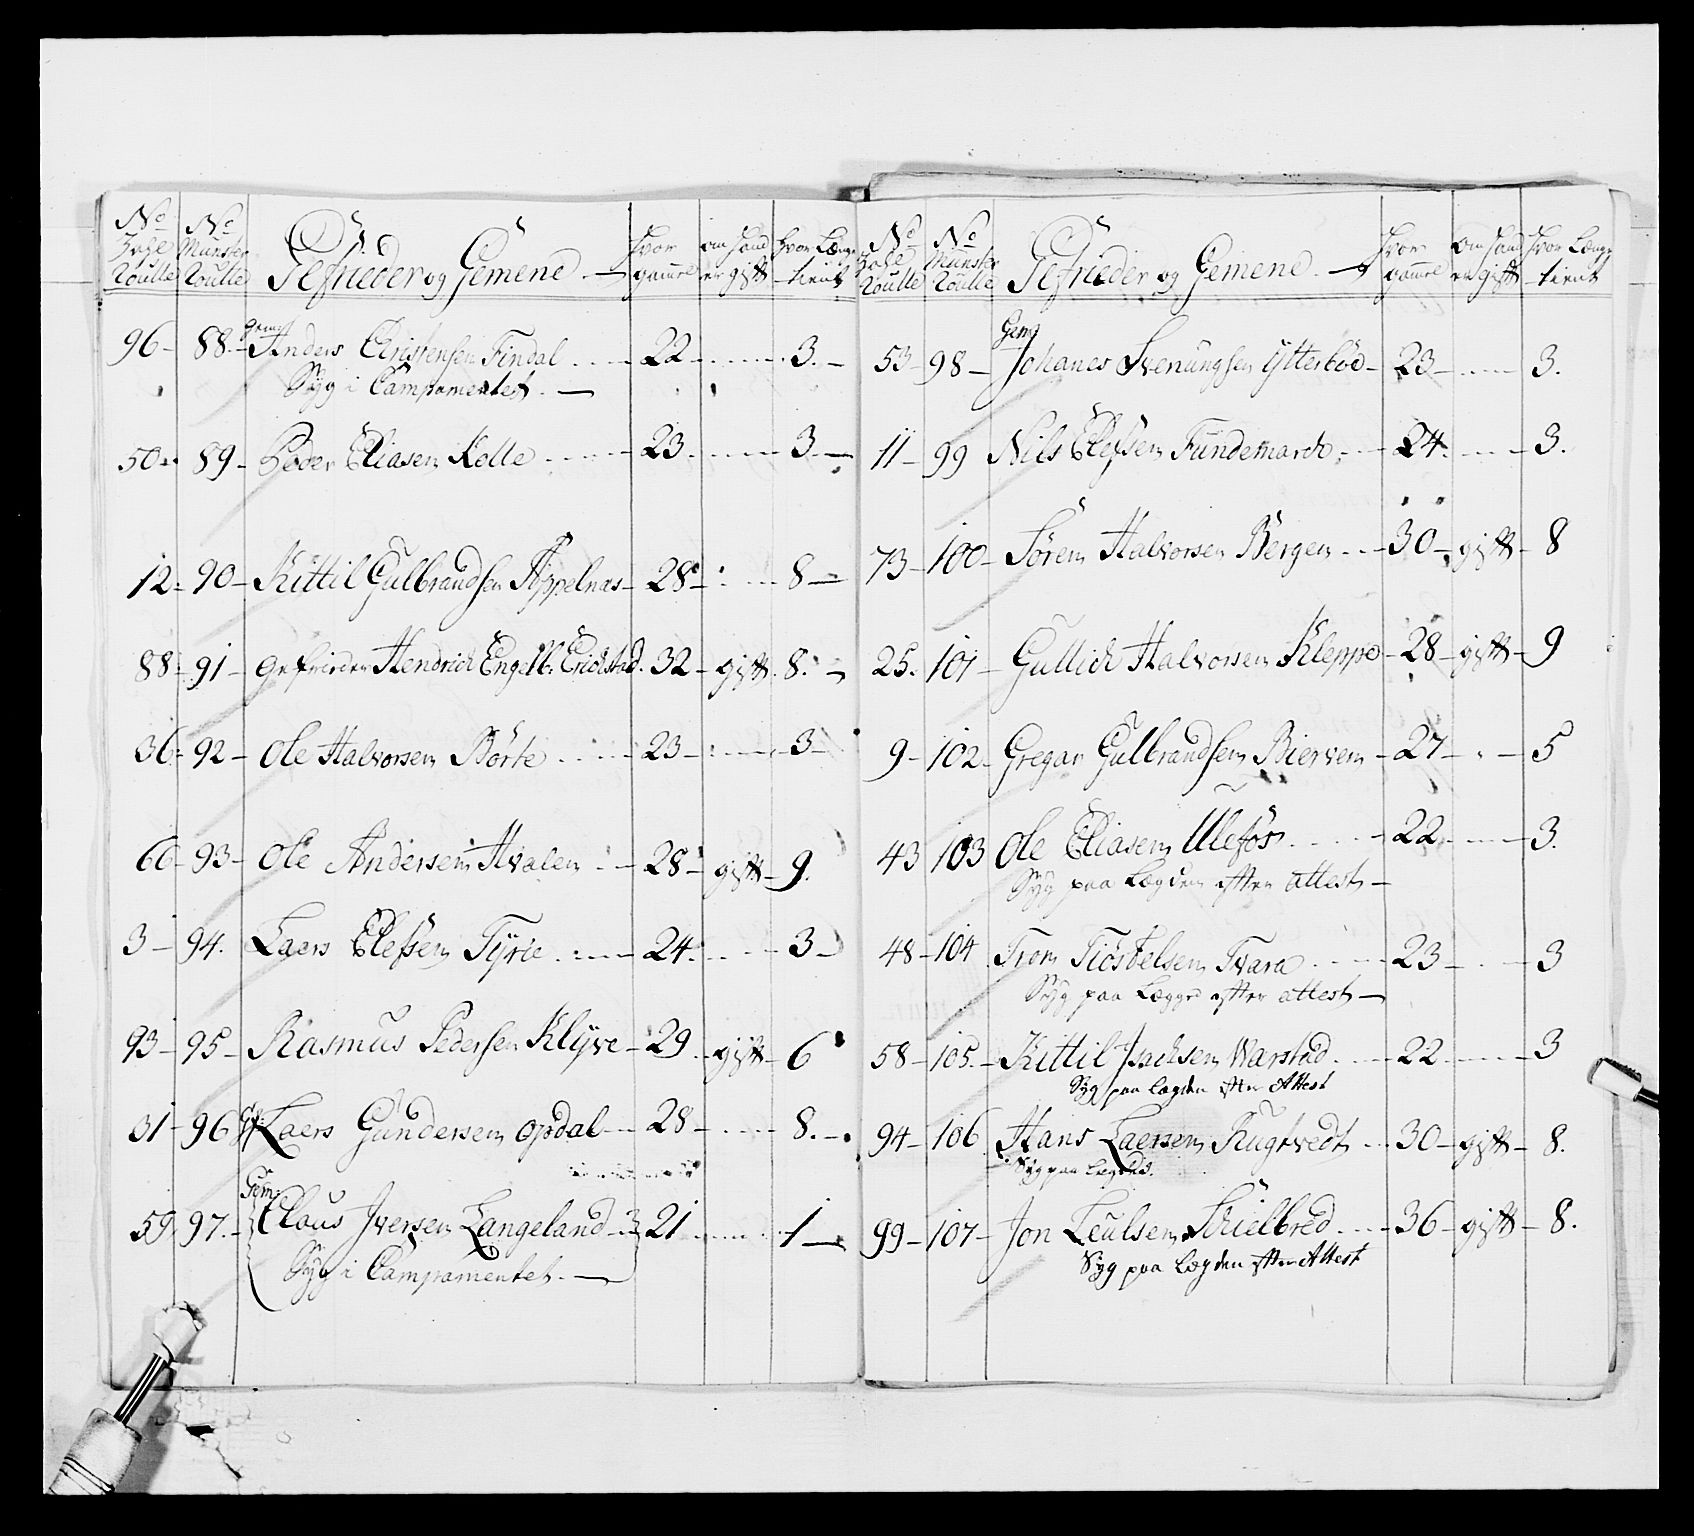 No Roulle No Munster Roulle Gefrieder og Gemene. Hvor gamel om hand er gift Hvor Længe tient
96 88 Gem: Anders Christensen Findal 22 3.
Syg i Campamentet.
50 89 Peder Eliasen Kolle 23 3
12 90 Kittil Gulbrandsen Appelnæs 28 8
88 91 Gefrieder Hendrich Engelb: Erichstad. 32 gift 8.
36 92 Ole Halvorsen Börte 23 3
66 93 Ole Andersen Hvalen 28 gift 9.
3 94. Laers Elefsen Tyrie 24 3
93 95 Rasmus Pedersen Klyve 29 gift 6
31 96 Laers Gundersen Opdal 28 8.
59 97. Gem: Claus Iversen Langeland 21 1
Syg i Campamentet.
No Roulle No Munster Roulle Gefrieder og Gemene. Hvor gamel Om hand er gift Hvor Længe tient
53 98 Gem: Johanes Svenungsen Ytterböe 23 3.
11 99 Nils Elefsen Fundemarch 24 3.
73 100 Sören Halvorsen Bergen 30 gift 8
25. 101 Gullich Halvorsen Kleppe 28 gift 9
9 102 Gregar Gulbrandsen Bierven 27 5
43 103 Ole Eliasen Ulefös 22 3.
Syg paa Lægden efter attest
48 104 Tron Tiöstelsen Tvara 23 3
Syg paa Lægged efter attest
58 105. Kittil Isachsen Warstad 22 3
Syg paa lægden efter Attest
94 106 Hans Laersen Rugtvedt 30 gift 8.
Syg paa
99 107 Jon Leulsen Skielbred 36 gift 8.
Syg paa Lægden efter Attest